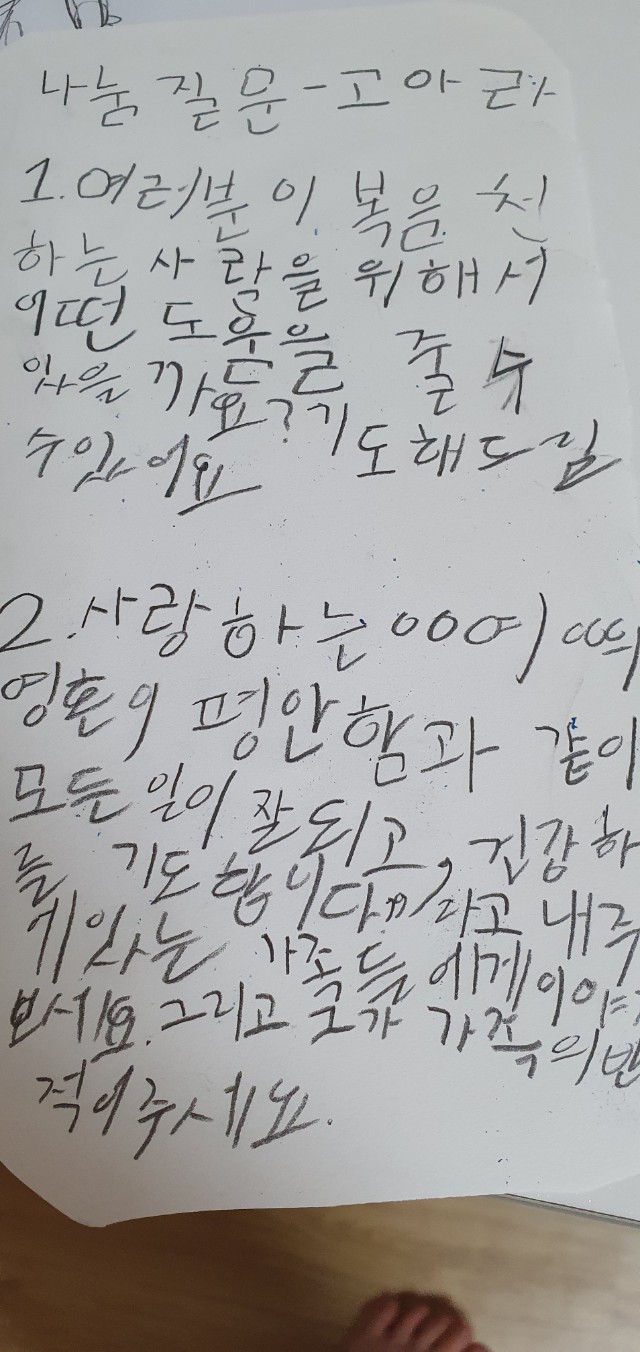 나눔 질문 - 고아라
1. 여러분이 복음 전
하는 사람을 위해서
어떤 도움을 줄 수
있을까요? 기도해드릴
수있어요
2. 사랑하는 000여 000의
영혼이 평안함과 같이
모든 일이 잘되고, 건강하
를 기도합니다", 라고 내 주
게있는 가족들에게 이야기
보세요. 그리고 그가 가족의 반
적어주세요.